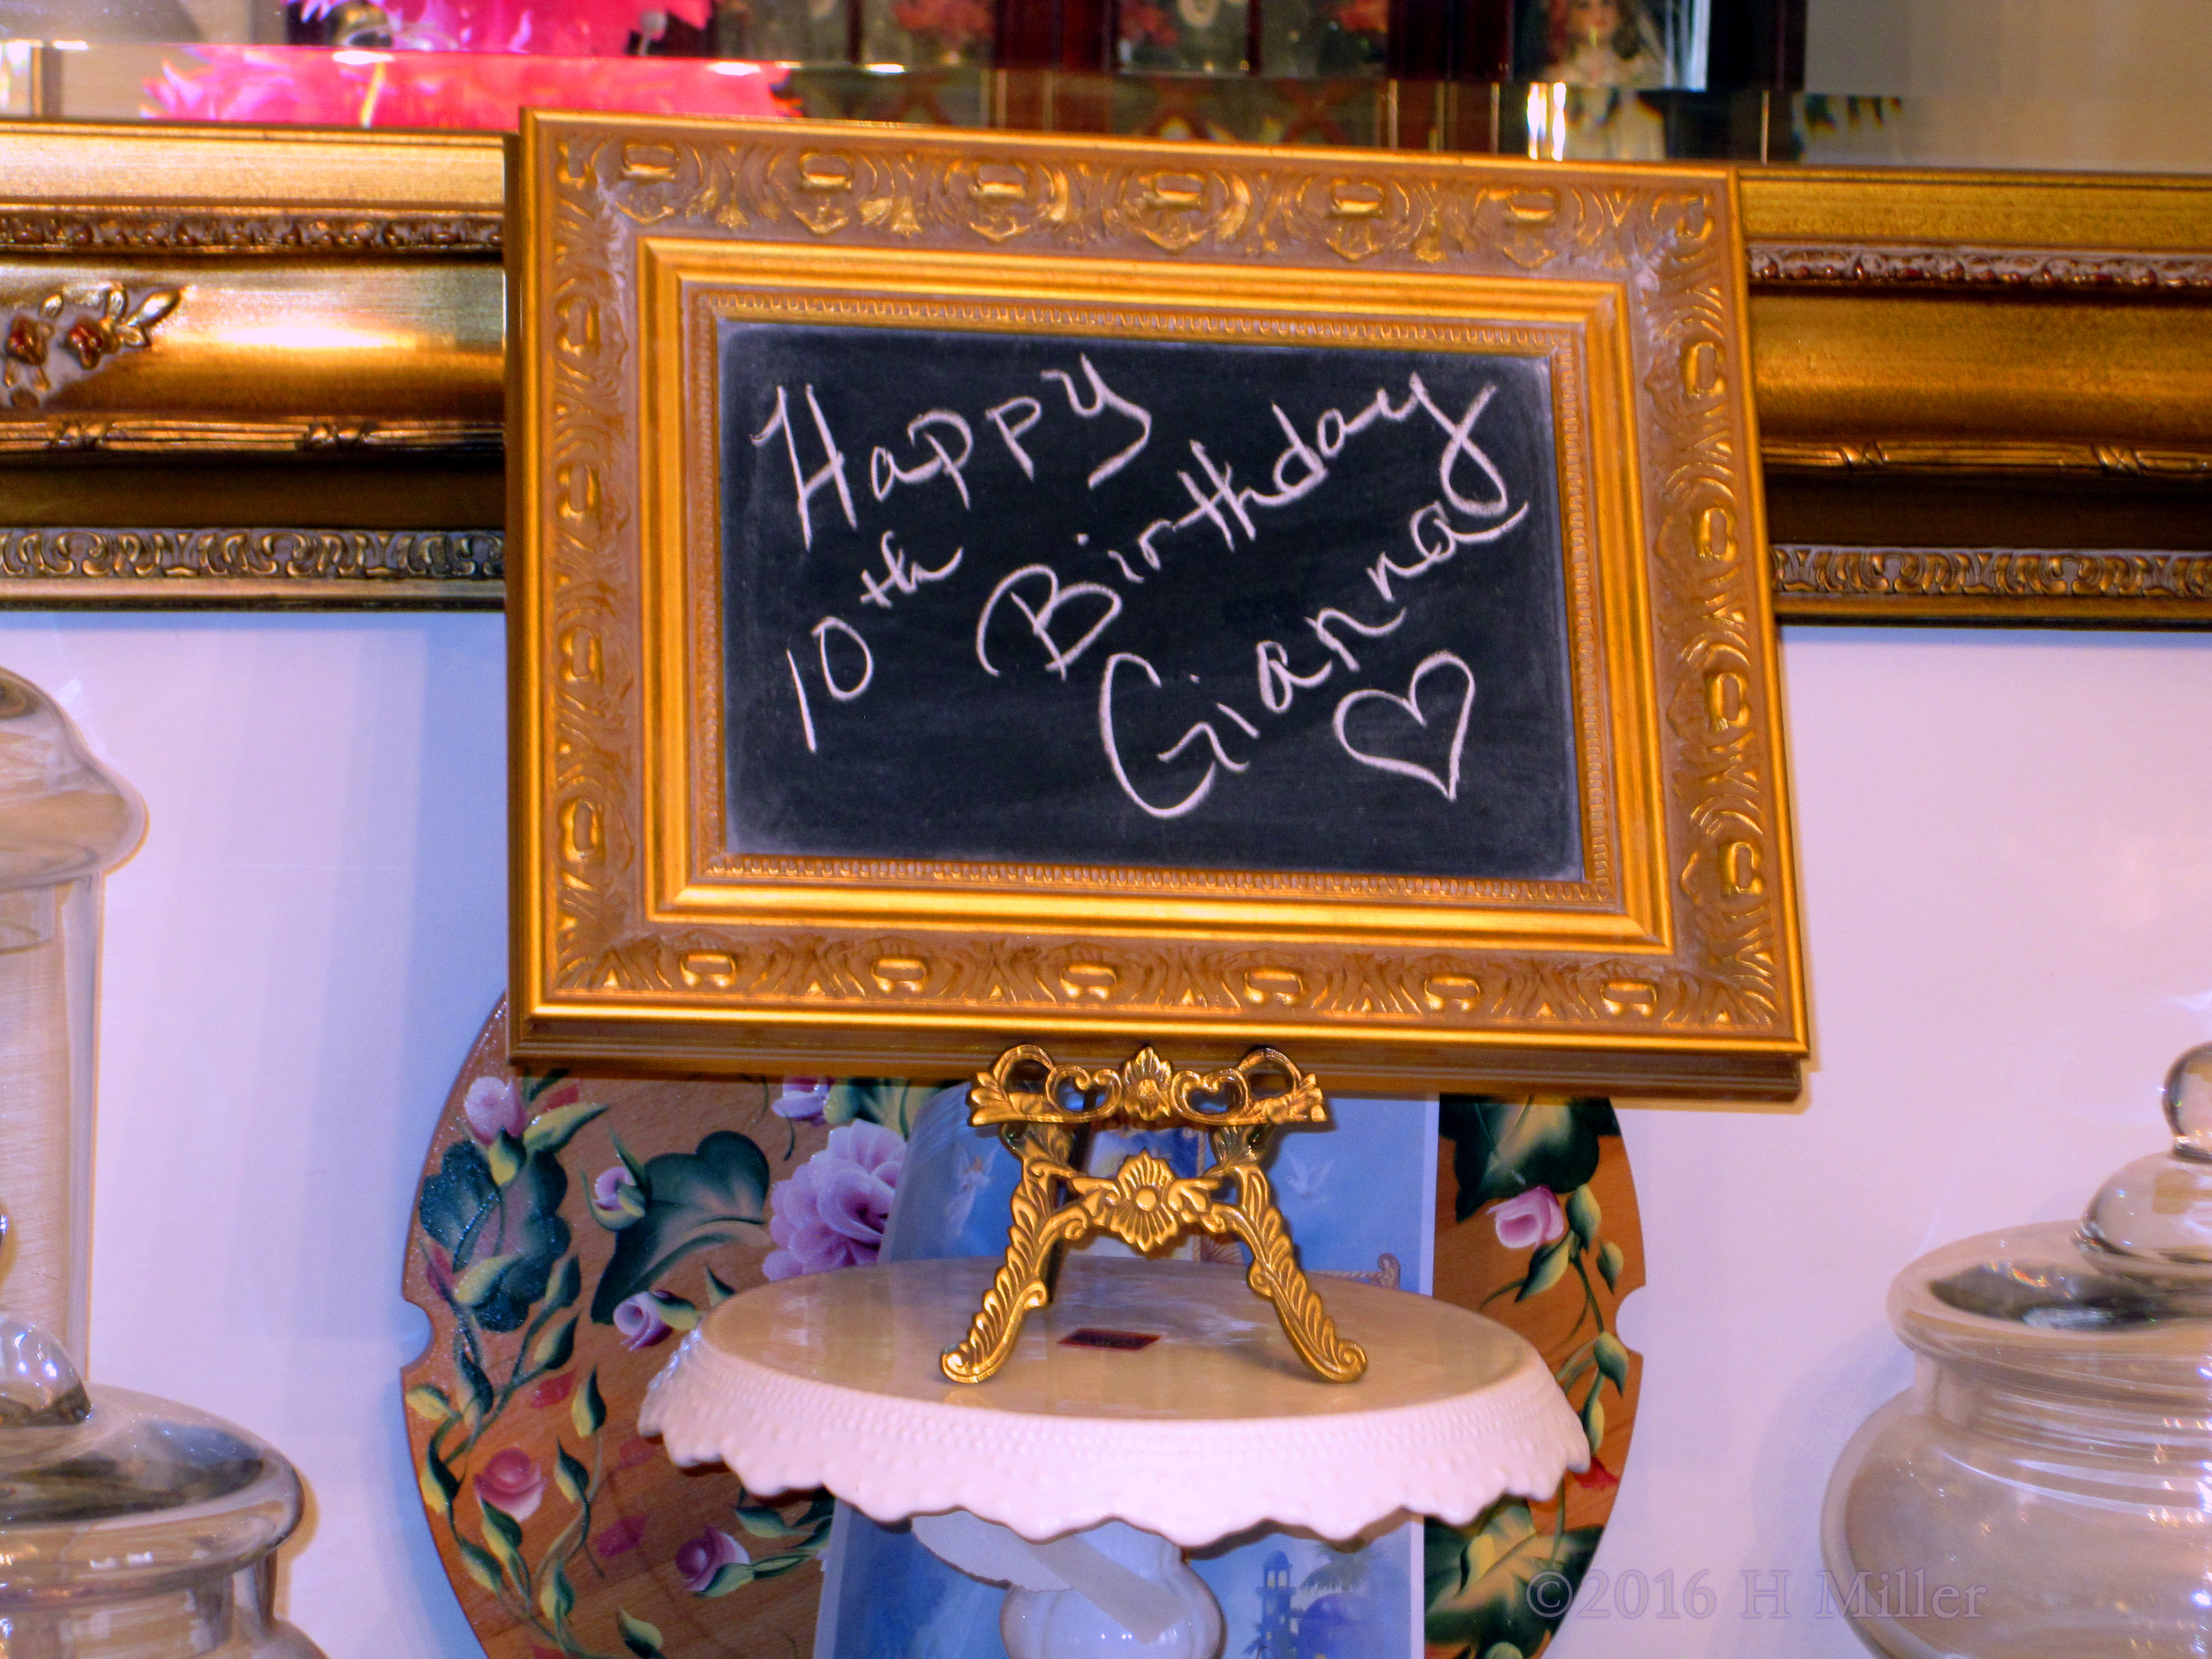 Happy
10th Birthday
Gianna
©2016 H Miller